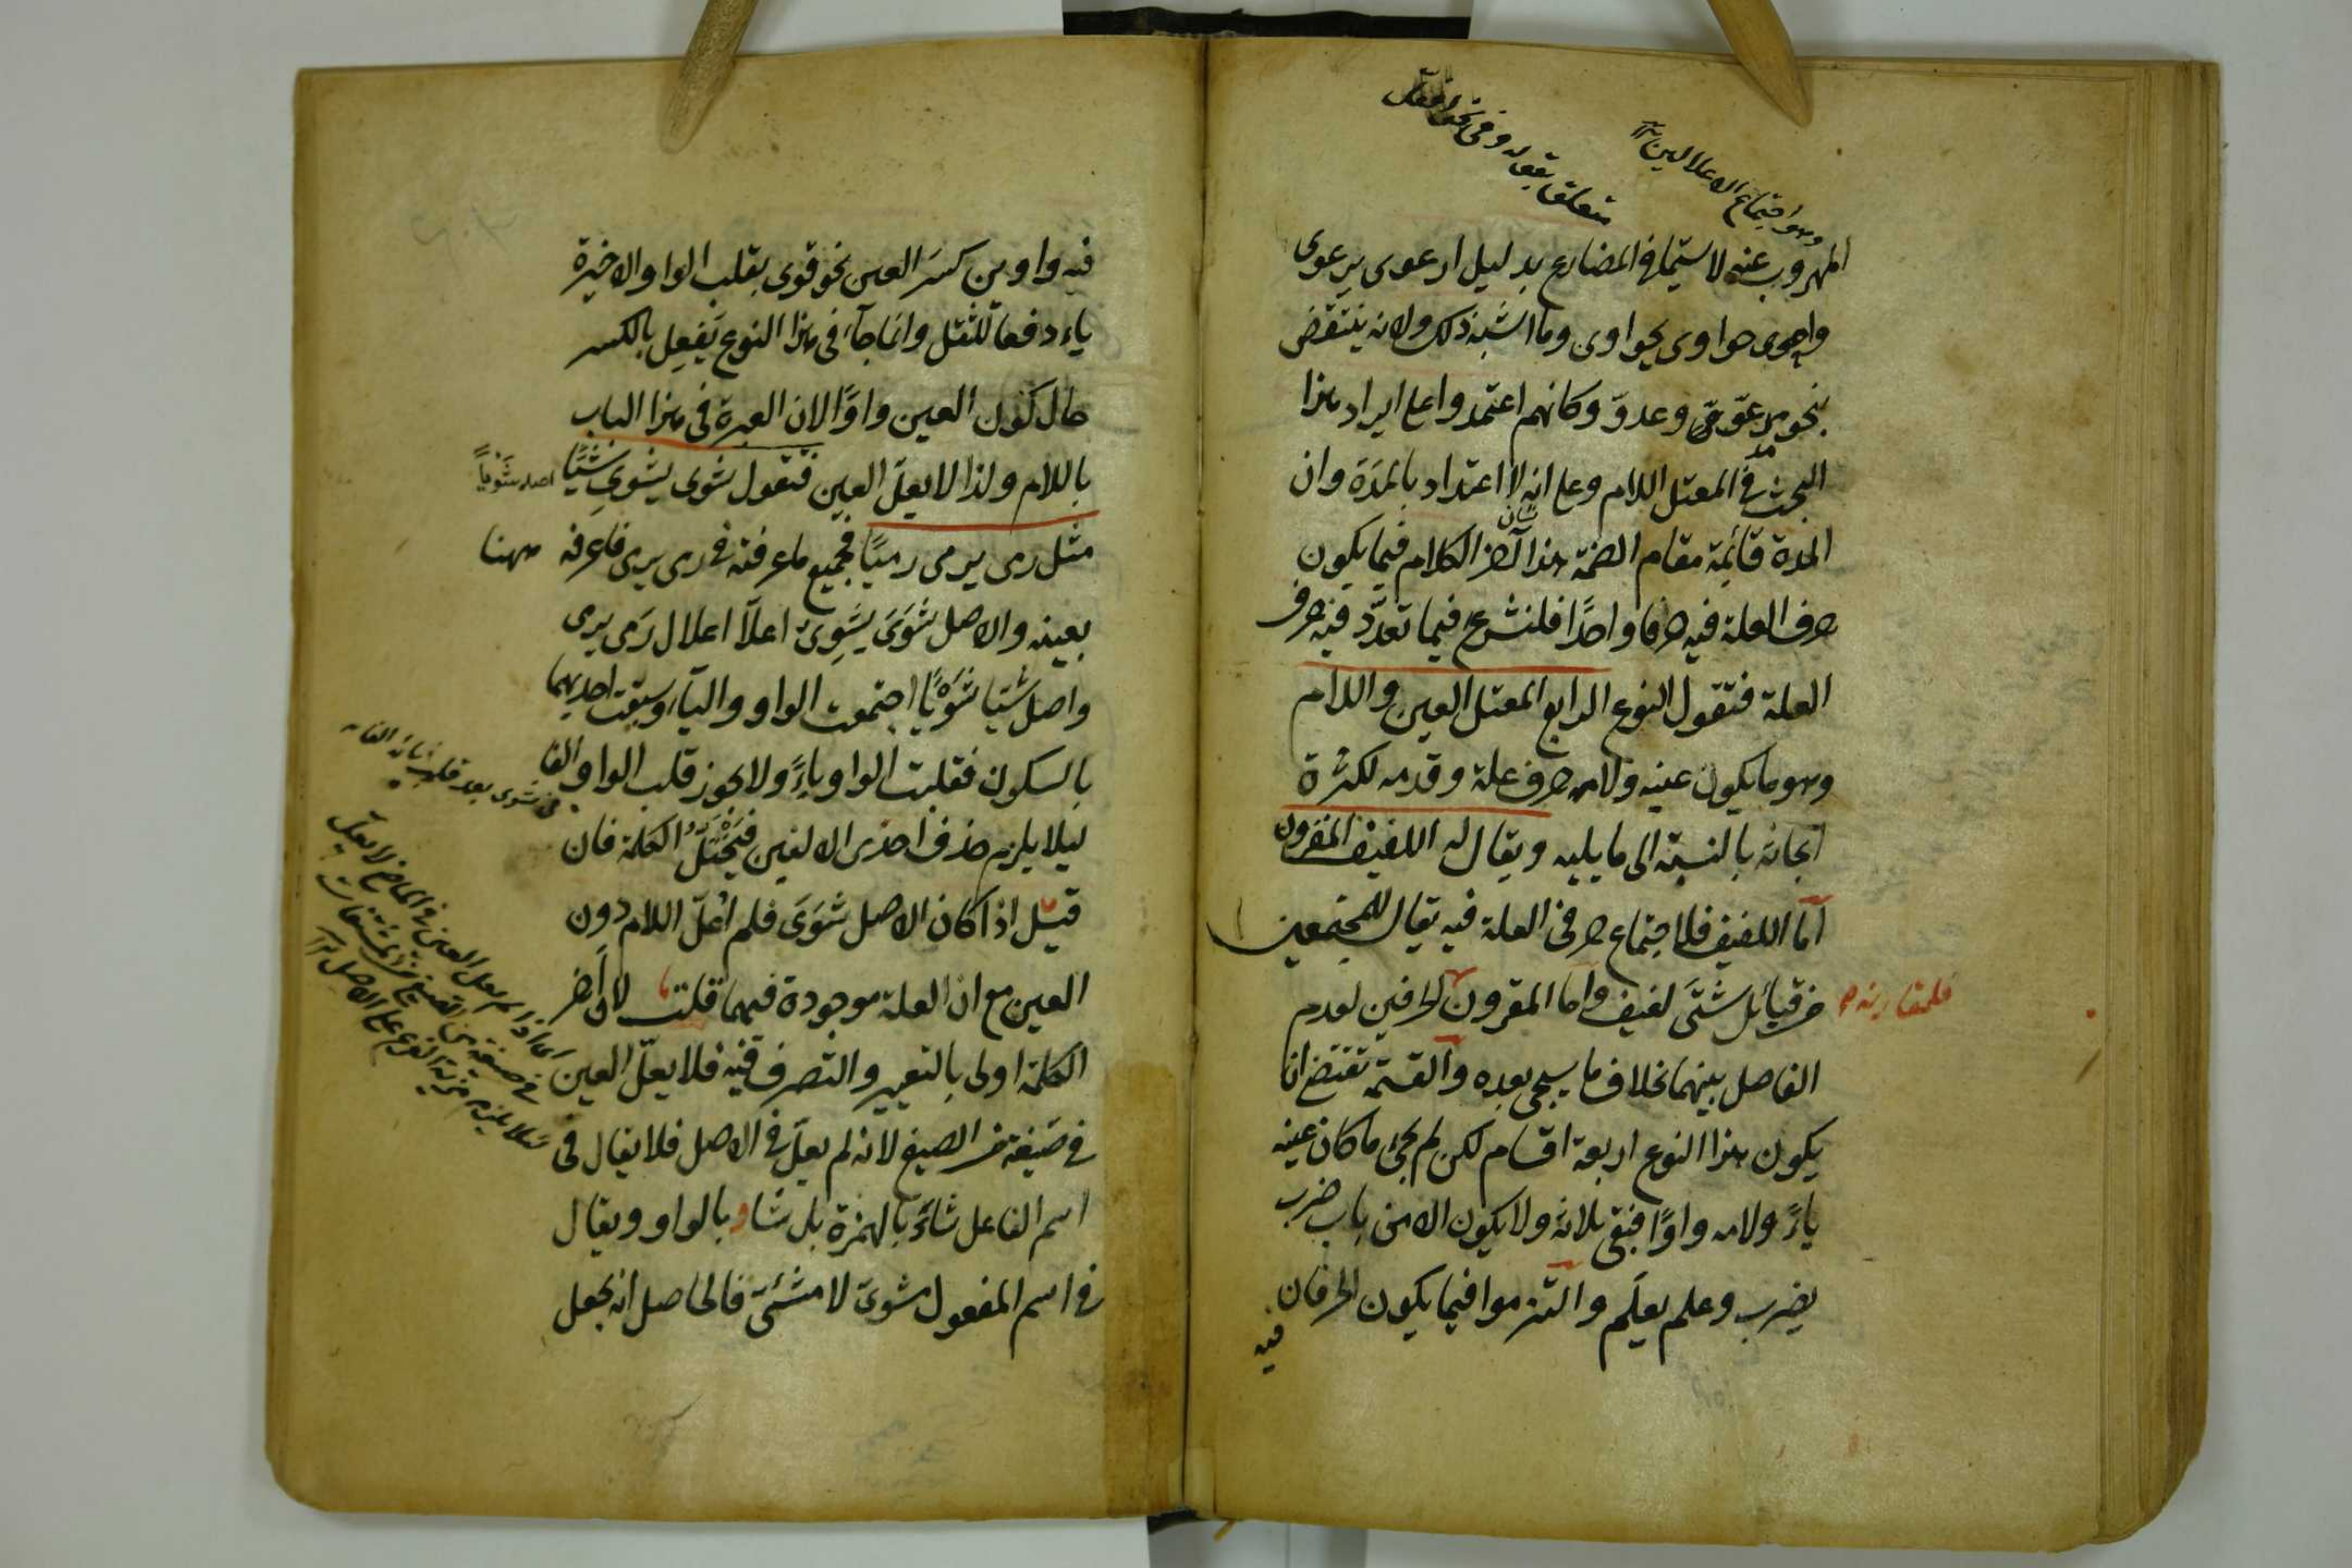 وهو اجتماع الاعلالين ١٢
متعلق بقوله وفي نحو افعلّ
المهروب عنه لا سيما في المضارع بدليل ارعوى يرعوى
واحووى حواوى يحواوى وما اشبه ذلك ولانه ينتقض
بنحو مدعوّ وعدوّ وكانهم اعتمدوا على ايراد هذا
البحث في المعتل اللام وعلى انه لا اعتداد بالمدة وان
المدة قائمة مقام الضمة هذا آخر الكلام فيما يكون
حرف العلة فيه حرفا واحدًا فلنشرع فيما تعدّد فيه حرف
العلة فنقول النوع الرابع المعتل العين واللام
وهو ما يكون عينه ولامه حرف علة وقدمه لكثرة
ابحاثه بالنسبة الى ما يليه ويقال له اللفيف المقرون
امّا اللفيف فلاجتماع حرفي العلة فيه يقال للمجتمعين
من قبائل شتّى لفيف واما المقرون الحرفين لعدم
فلمقارنة
الفاصل بينهما بخلاف ما سيجئ بعده والقسمة تقتضى ان
يكون هذا النوع اربعة اقسام لكن لم يجئ ما كان عينه
ياءً ولامه واوًا فبقى ثلاثة ولا يكون الا من باب ضرب
يضرب وعلم يعلم والتزموا فيما يكون الحرفان
فيه
فيه واوين كسر العين نحو قوى بقلب الواو الاخيرة
ياء دفعا للثقل وانما جاء في هذا النوع يفعل بالكسر
حال كون العين واوًا لان العبرة في هذا الباب
باللام ولذا لا يعلّ العين فتقول شوى يشوى شيّا
اصله شويًا
مثل رمى يرمى رميًا فجميع ما عرفته في رمى يرمى فاعرفه ههنا
بعينه والاصل شَوَىَ يَشوِىُ اعلّا اعلال رَمى يرمى
واصل شيّا شَوْيًا اجتمعت الواو والياء وسبقت احديهما
بالسكون فقلبت الواو ياءً ولا يجوز قلب الواو الفا
في شوى بعد قلب يائه الفا
ليلا يلزم حذف احدى الالفين فيختلّ الكلمة فان
قيل اذا كان الاصل شَوَىَ فلم اُعلّ اللام دون
العين مع ان العلة موجودة فيهما قلت لان آخر
الكلمة اولى بالتغيير والتصرف فيه فلا يعلّ العين
في صيغة من الصيغ لانه لم يعلّ في الاصل فلا يقال في
اسم الفاعل شاءٍ بالهمزة بل شاوٍ بالواو ويقال
في اسم المفعول مشوىّ لا مشئىّ فالحاصل انه يجعل
اى اذا لم يعل العين في الماضي لا يعلّ
في صيغة من الصيغ من المشتقات
لئلا يلزم مزية الفرع على الاصل ١٢